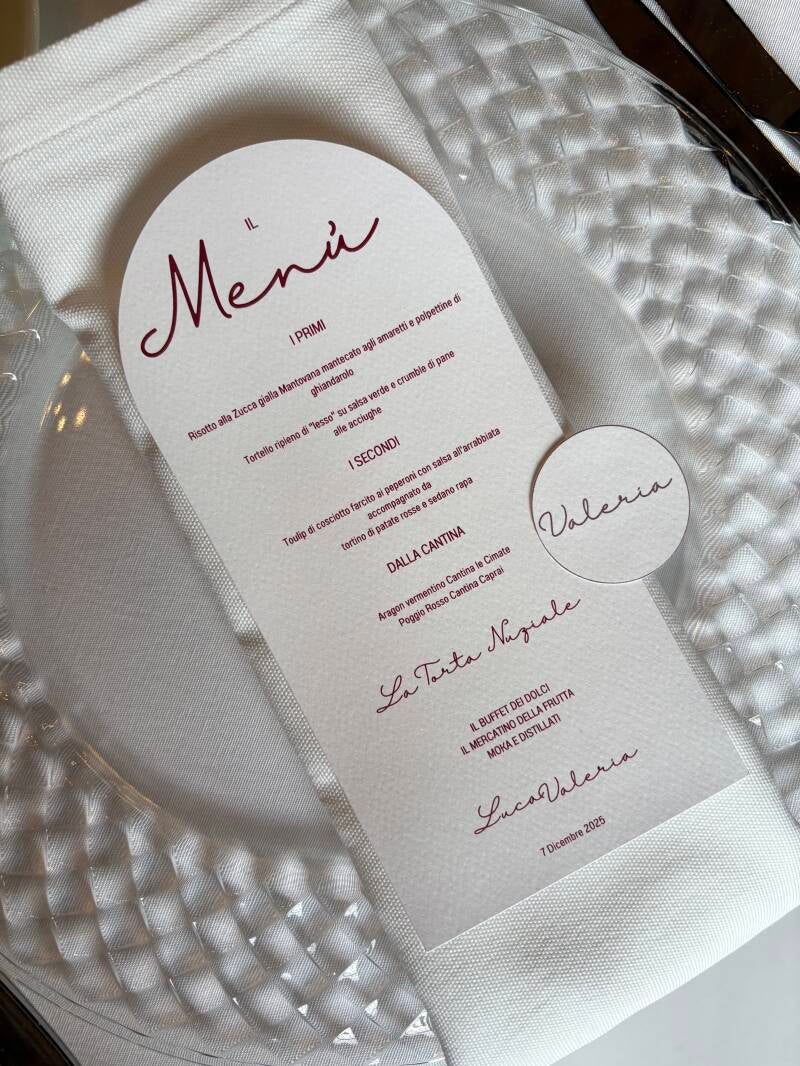 IL
Menù
I PRIMI
Risotto alla Zucca gialla Mantovana mantecato agli amaretti e polpettine di
ghiandarolo
Tortello ripieno di "lesso" su salsa verde e crumble di pane
alle acciughe
I SECONDI
Toulip di cosciotto farcito ai peperoni con salsa all'arrabbiata
accompagnato da
tortino di patate rosse e sedano rapa
DALLA CANTINA
Aragon vermentino Cantina le Cimate
Poggio Rosso Cantina Caprai
Valeria
La Torta Nuziale
IL BUFFET DEI DOLCI
IL MERCATINO DELLA FRUTTA
MOKA E DISTILLATI
LucaValeria
7 Dicembre 2025